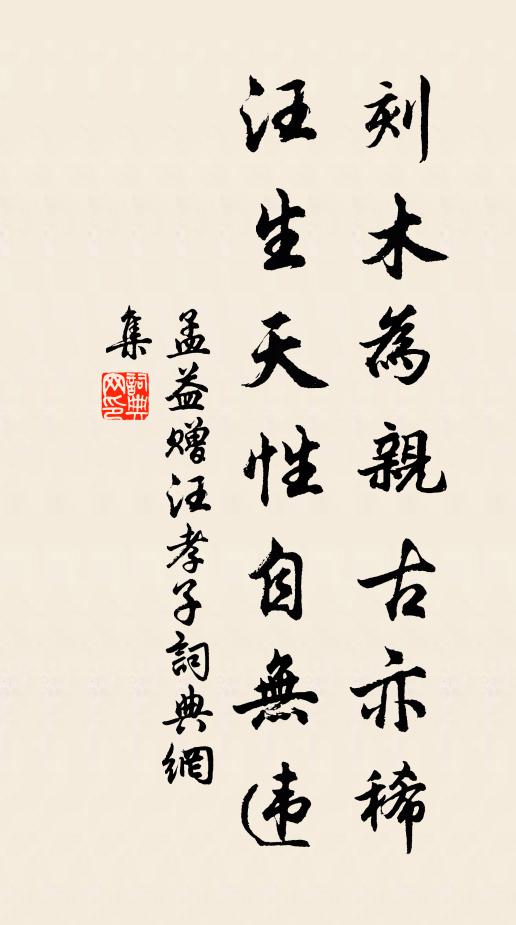 刻木為親古亦稀
汪生天性自無违
孟益赠汪孝子詞典網
集
詞典
网印